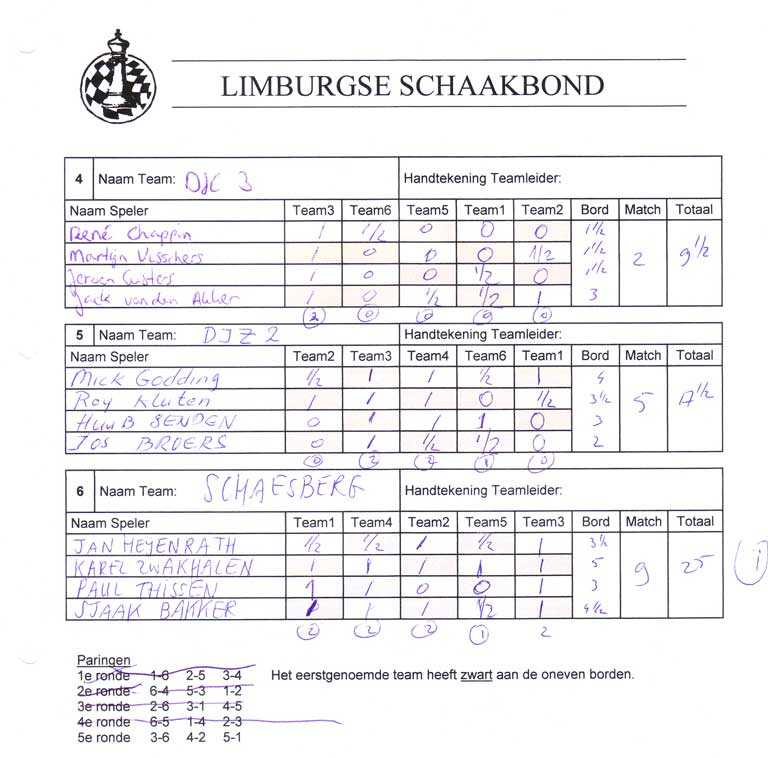 LIMBURGSE SCHAAKBOND
4 Naam Team: DJC 3 Handtekening Teamleider:
Naam Speler Team3 Team6 Team5 Team1 Team2 Bord Match Totaal
René Chappin 1 1/2 0 0 0 1 1/2
Martijn Visschers 1 0 0 0 1/2 1 1/2 2 9 1/2
Jeroen Custers 1 0 0 1/2 0 1 1/2
Jack van den Akker 1 0 1/2 1/2 1 3
2 0 0 0 0
5 Naam Team: DJZ 2 Handtekening Teamleider:
Naam Speler Team2 Team3 Team4 Team6 Team1 Bord Match Totaal
Mick Godding 1/2 1 1 1/2 1 4
Roy Kluten 1 1 1 0 1/2 3 1/2 5 17 1/2
HuuB SENDEN 0 1 1 1 0 3
JOS BROERS 0 1 1/2 1/2 0 2
0 2 2 1 0
6 Naam Team: SCHAESBERG Handtekening Teamleider:
Naam Speler Team1 Team4 Team2 Team5 Team3 Bord Match Totaal
JAN MEYENRATH 1/2 1/2 1 1/2 1 3 1/2
KAREL ZWAKHALEN 1 1 1 1 1 5 9 25 1
PAUL THISSEN 1 1 0 0 1 3
SJAAK BAKKER 1 1 1 1/2 1 4 1/2
2 2 2 1 2
Paringen
1e ronde 1-6 2-5 3-4 Het eerstgenoemde team heeft zwart aan de oneven borden.
2e ronde 6-4 5-3 1-2
3e ronde 2-6 3-1 4-5
4e ronde 6-5 1-4 2-3
5e ronde 3-6 4-2 5-1